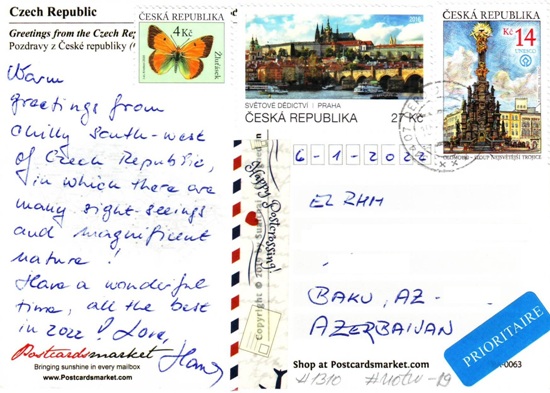 Czech Republic
Greetings from the Czech Rep
Pozdravy z České republiky (
Warm
greetings from
chilly south-west
of Czech Republic,
in which there are
many sight-seeings
and magnificent
nature!
Have a wonderful
time, all the best
in 2022! Love,
Hana
Postcardsmarket
Bringing sunshine in every mailbox
www.Postcardsmarket.com
ČESKÁ REPUBLIKA
4 Kč
Žluťásek
2016
SVĚTOVÉ DĚDICTVÍ | PRAHA
ČESKÁ REPUBLIKA 27 Kč
ČESKÁ REPUBLIKA
Kč 14
UNESCO
OLOMOUC - SLOUP NEJSVĚTĚJŠÍ TROJICE
Happy Postcrossing!
6-1-2022
BAKU, AZ-
AZERBAIJAN
PRIORITAIRE
Shop at Postcardsmarket.com
-0063
#1310